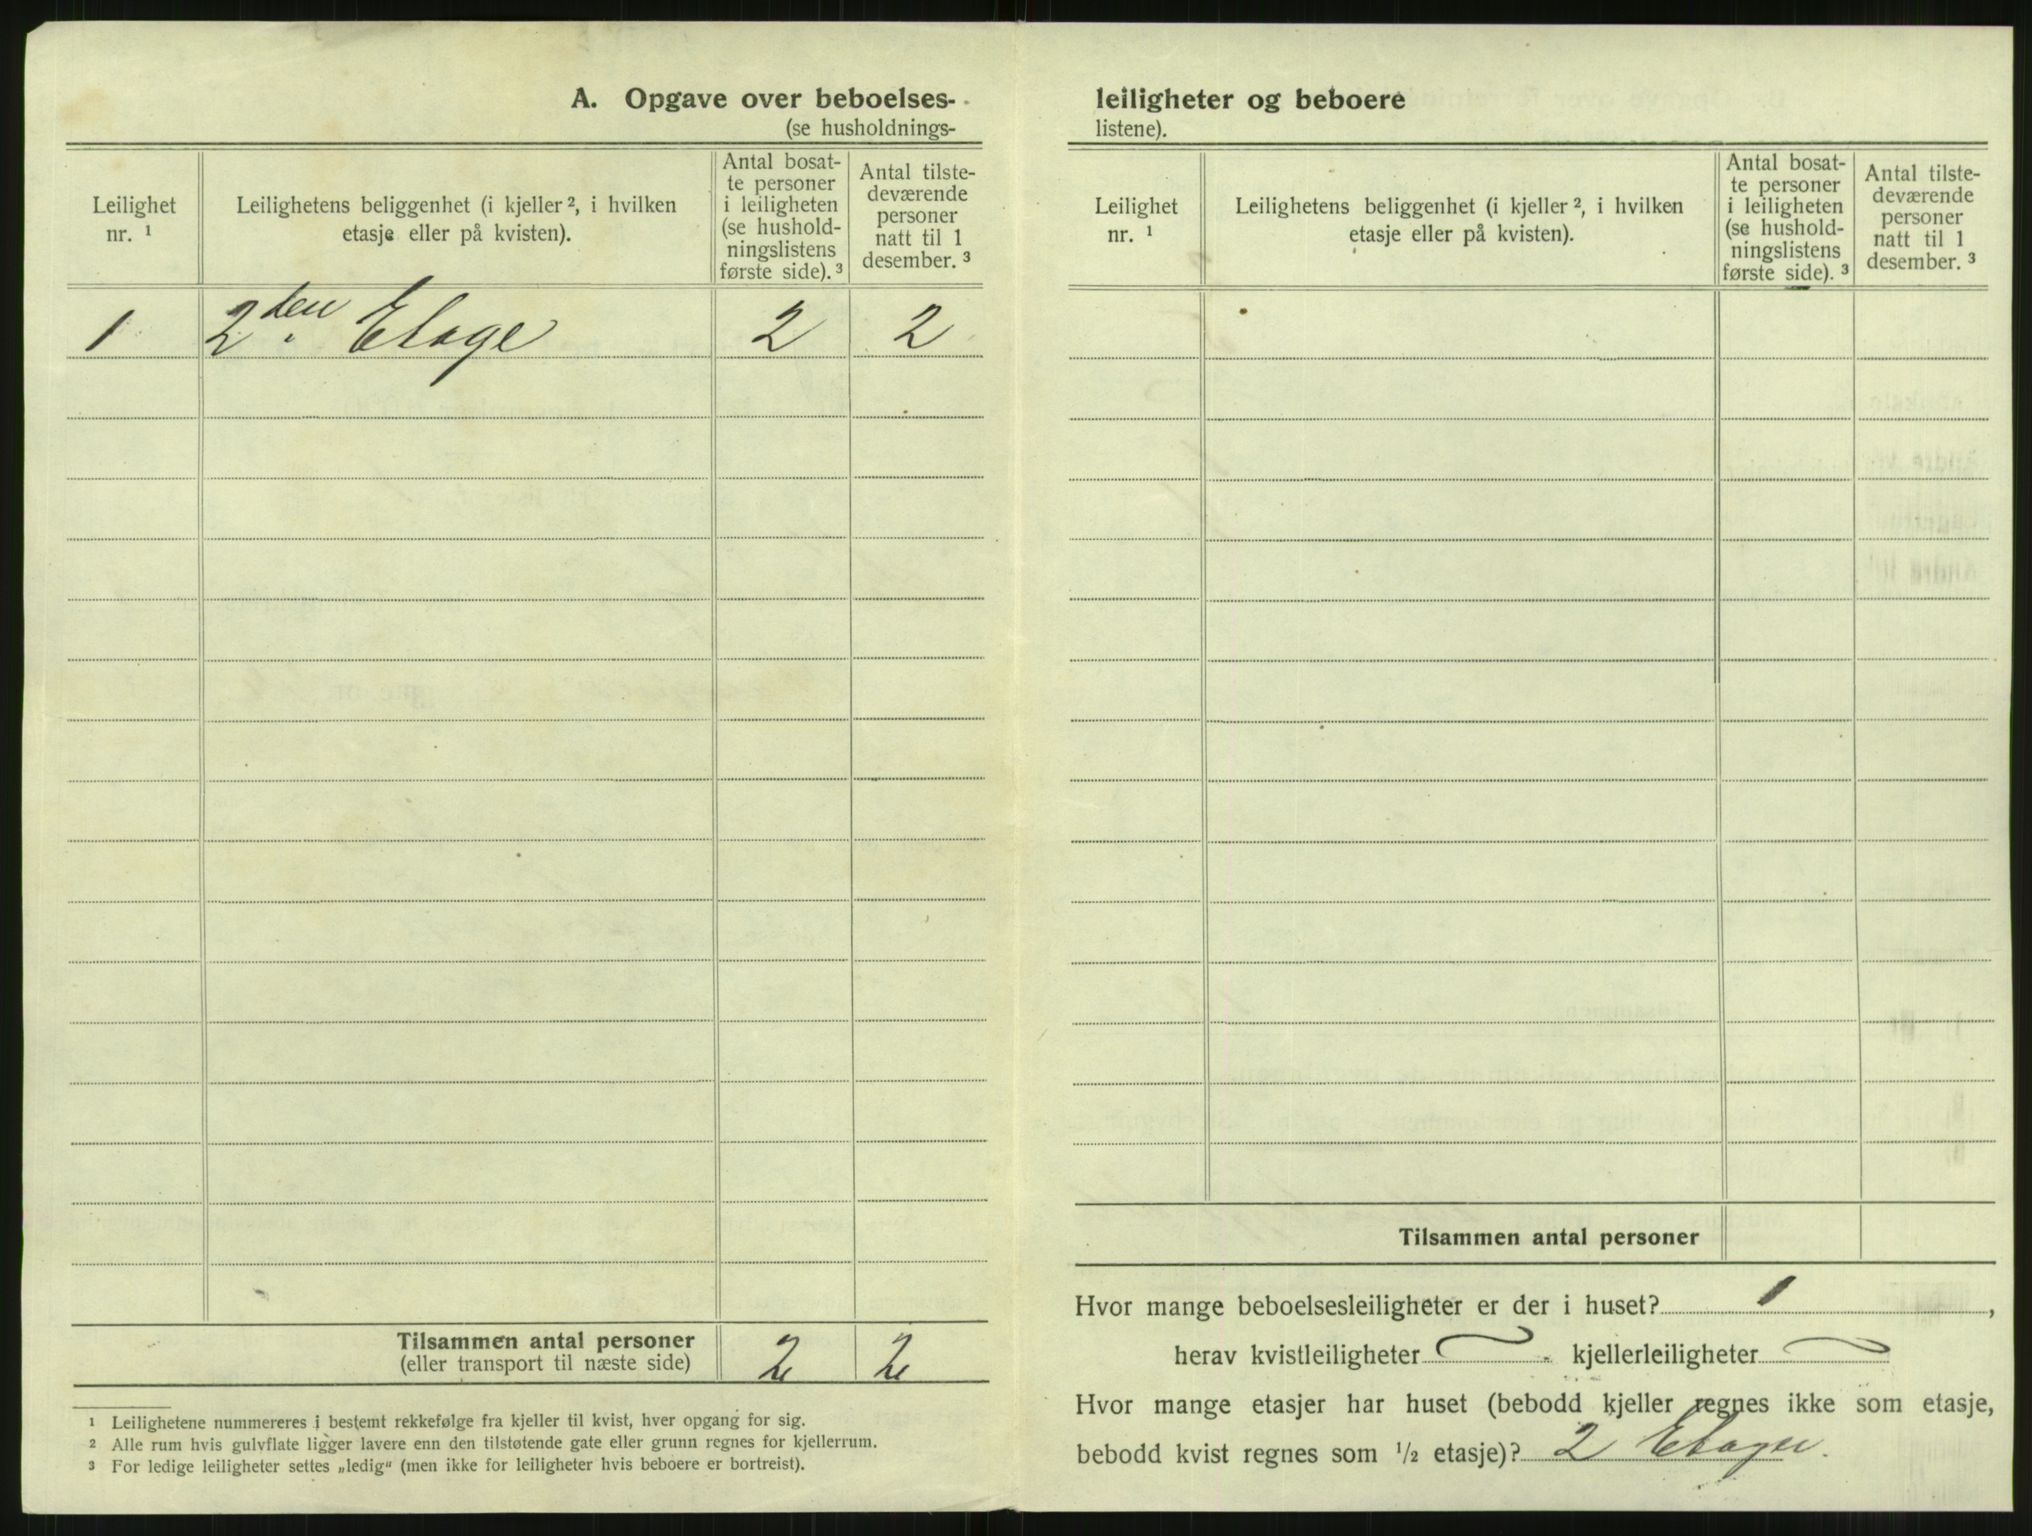 A. Opgave over beboelses-
(se husholdnings-
Leilighet
nr. ¹
Leilighetens beliggenhet (i kjeller ², i hvilken
etasje eller på kvisten).
Antal bosat-
te personer
i leiligheten
(se hushold-
ningslistens
første side). ³
Antal tilste-
deværende
personer
natt til 1
desember. ³
1 2den Etage 2 2
Tilsammen antal personer
(eller transport til næste side)
2 2
¹ Leilighetene nummereres i bestemt rekkefølge fra kjeller til kvist, hver opgang for sig.
² Alle rum hvis gulvflate ligger lavere enn den tilstøtende gate eller grunn regnes for kjellerrum.
³ For ledige leiligheter settes „ledig“ (men ikke for leiligheter hvis beboere er bortreist).
leiligheter og beboere
listene).
Leilighet
nr. ¹
Leilighetens beliggenhet (i kjeller ², i hvilken
etasje eller på kvisten).
Antal bosat-
te personer
i leiligheten
(se hushold-
ningslistens
første side). ³
Antal tilste-
deværende
personer
natt til 1
desember. ³
Tilsammen antal personer
Hvor mange beboelsesleiligheter er der i huset? 1,
herav kvistleiligheter kjellerleiligheter
Hvor mange etasjer har huset (bebodd kjeller regnes ikke som etasje,
bebodd kvist regnes som ½ etasje)? 2 Etager.